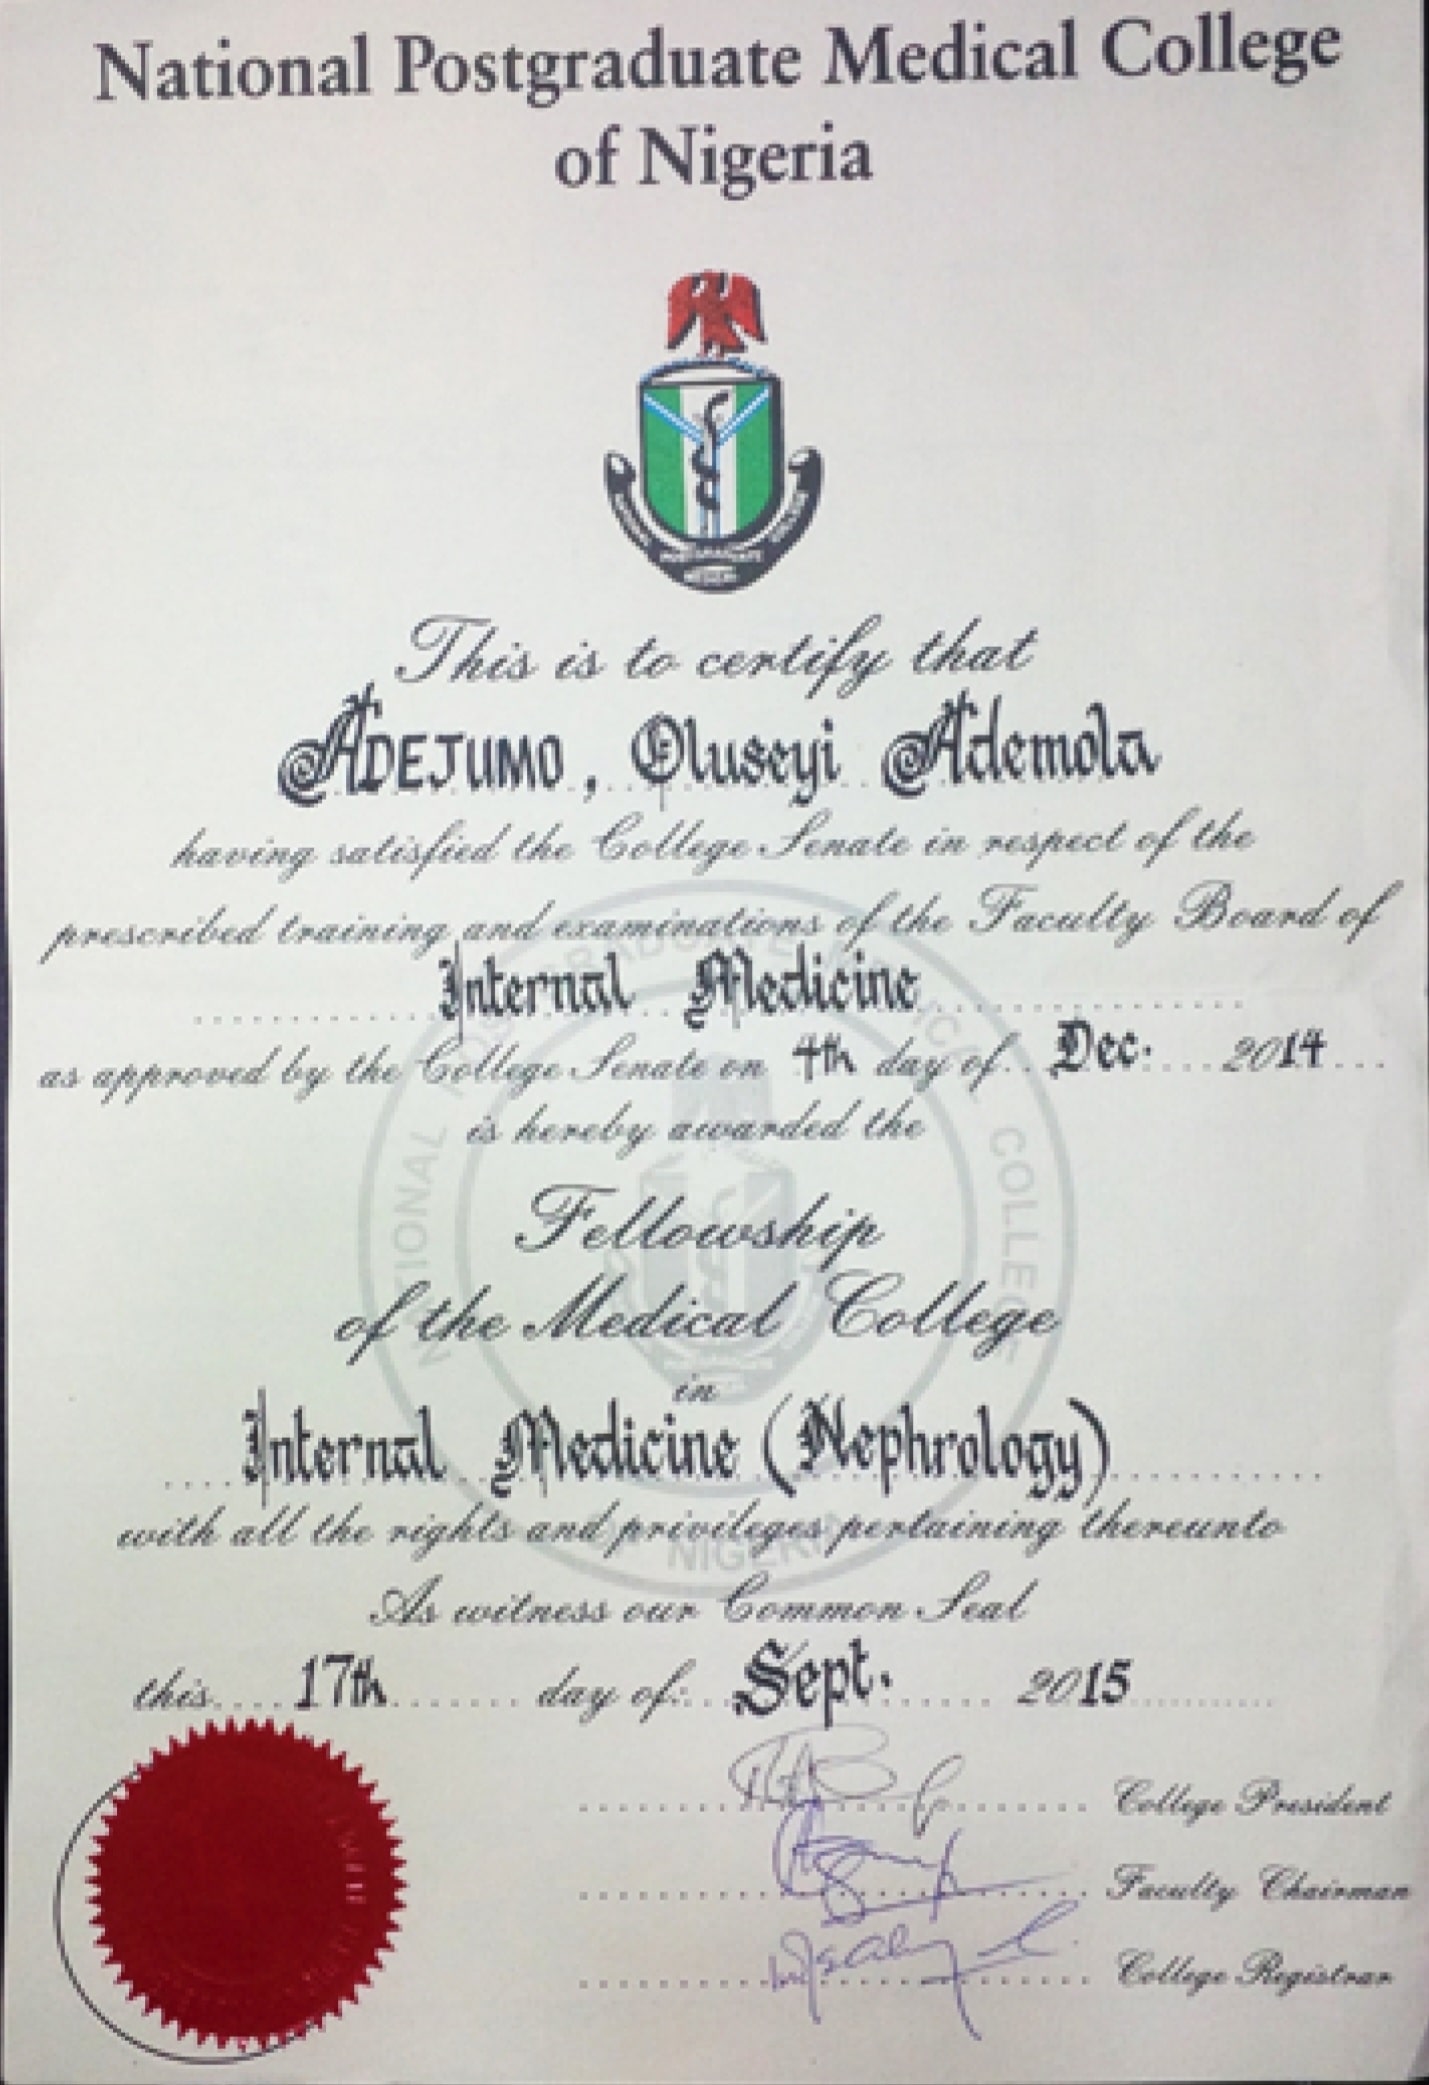 National Postgraduate Medical College
of Nigeria
NATIONAL POSTGRADUATE COLLEGE
MEDICAL
This is to certify that
ADEJUMO, Oluseyi Ademola
having satisfied the College Senate in respect of the
prescribed training and examinations of the Faculty Board of
Internal Medicine
as approved by the College Senate on 4th day of Dec. 2014
is hereby awarded the
Fellowship
of the Medical College
in
Internal Medicine (Nephrology)
with all the rights and privileges pertaining thereunto
As witness our Common Seal
this 17th day of: Sept. 2015
College President
Faculty Chairman
College Registrar
NATIONAL POSTGRADUATE MEDICAL COLLEGE
OF NIGERIA